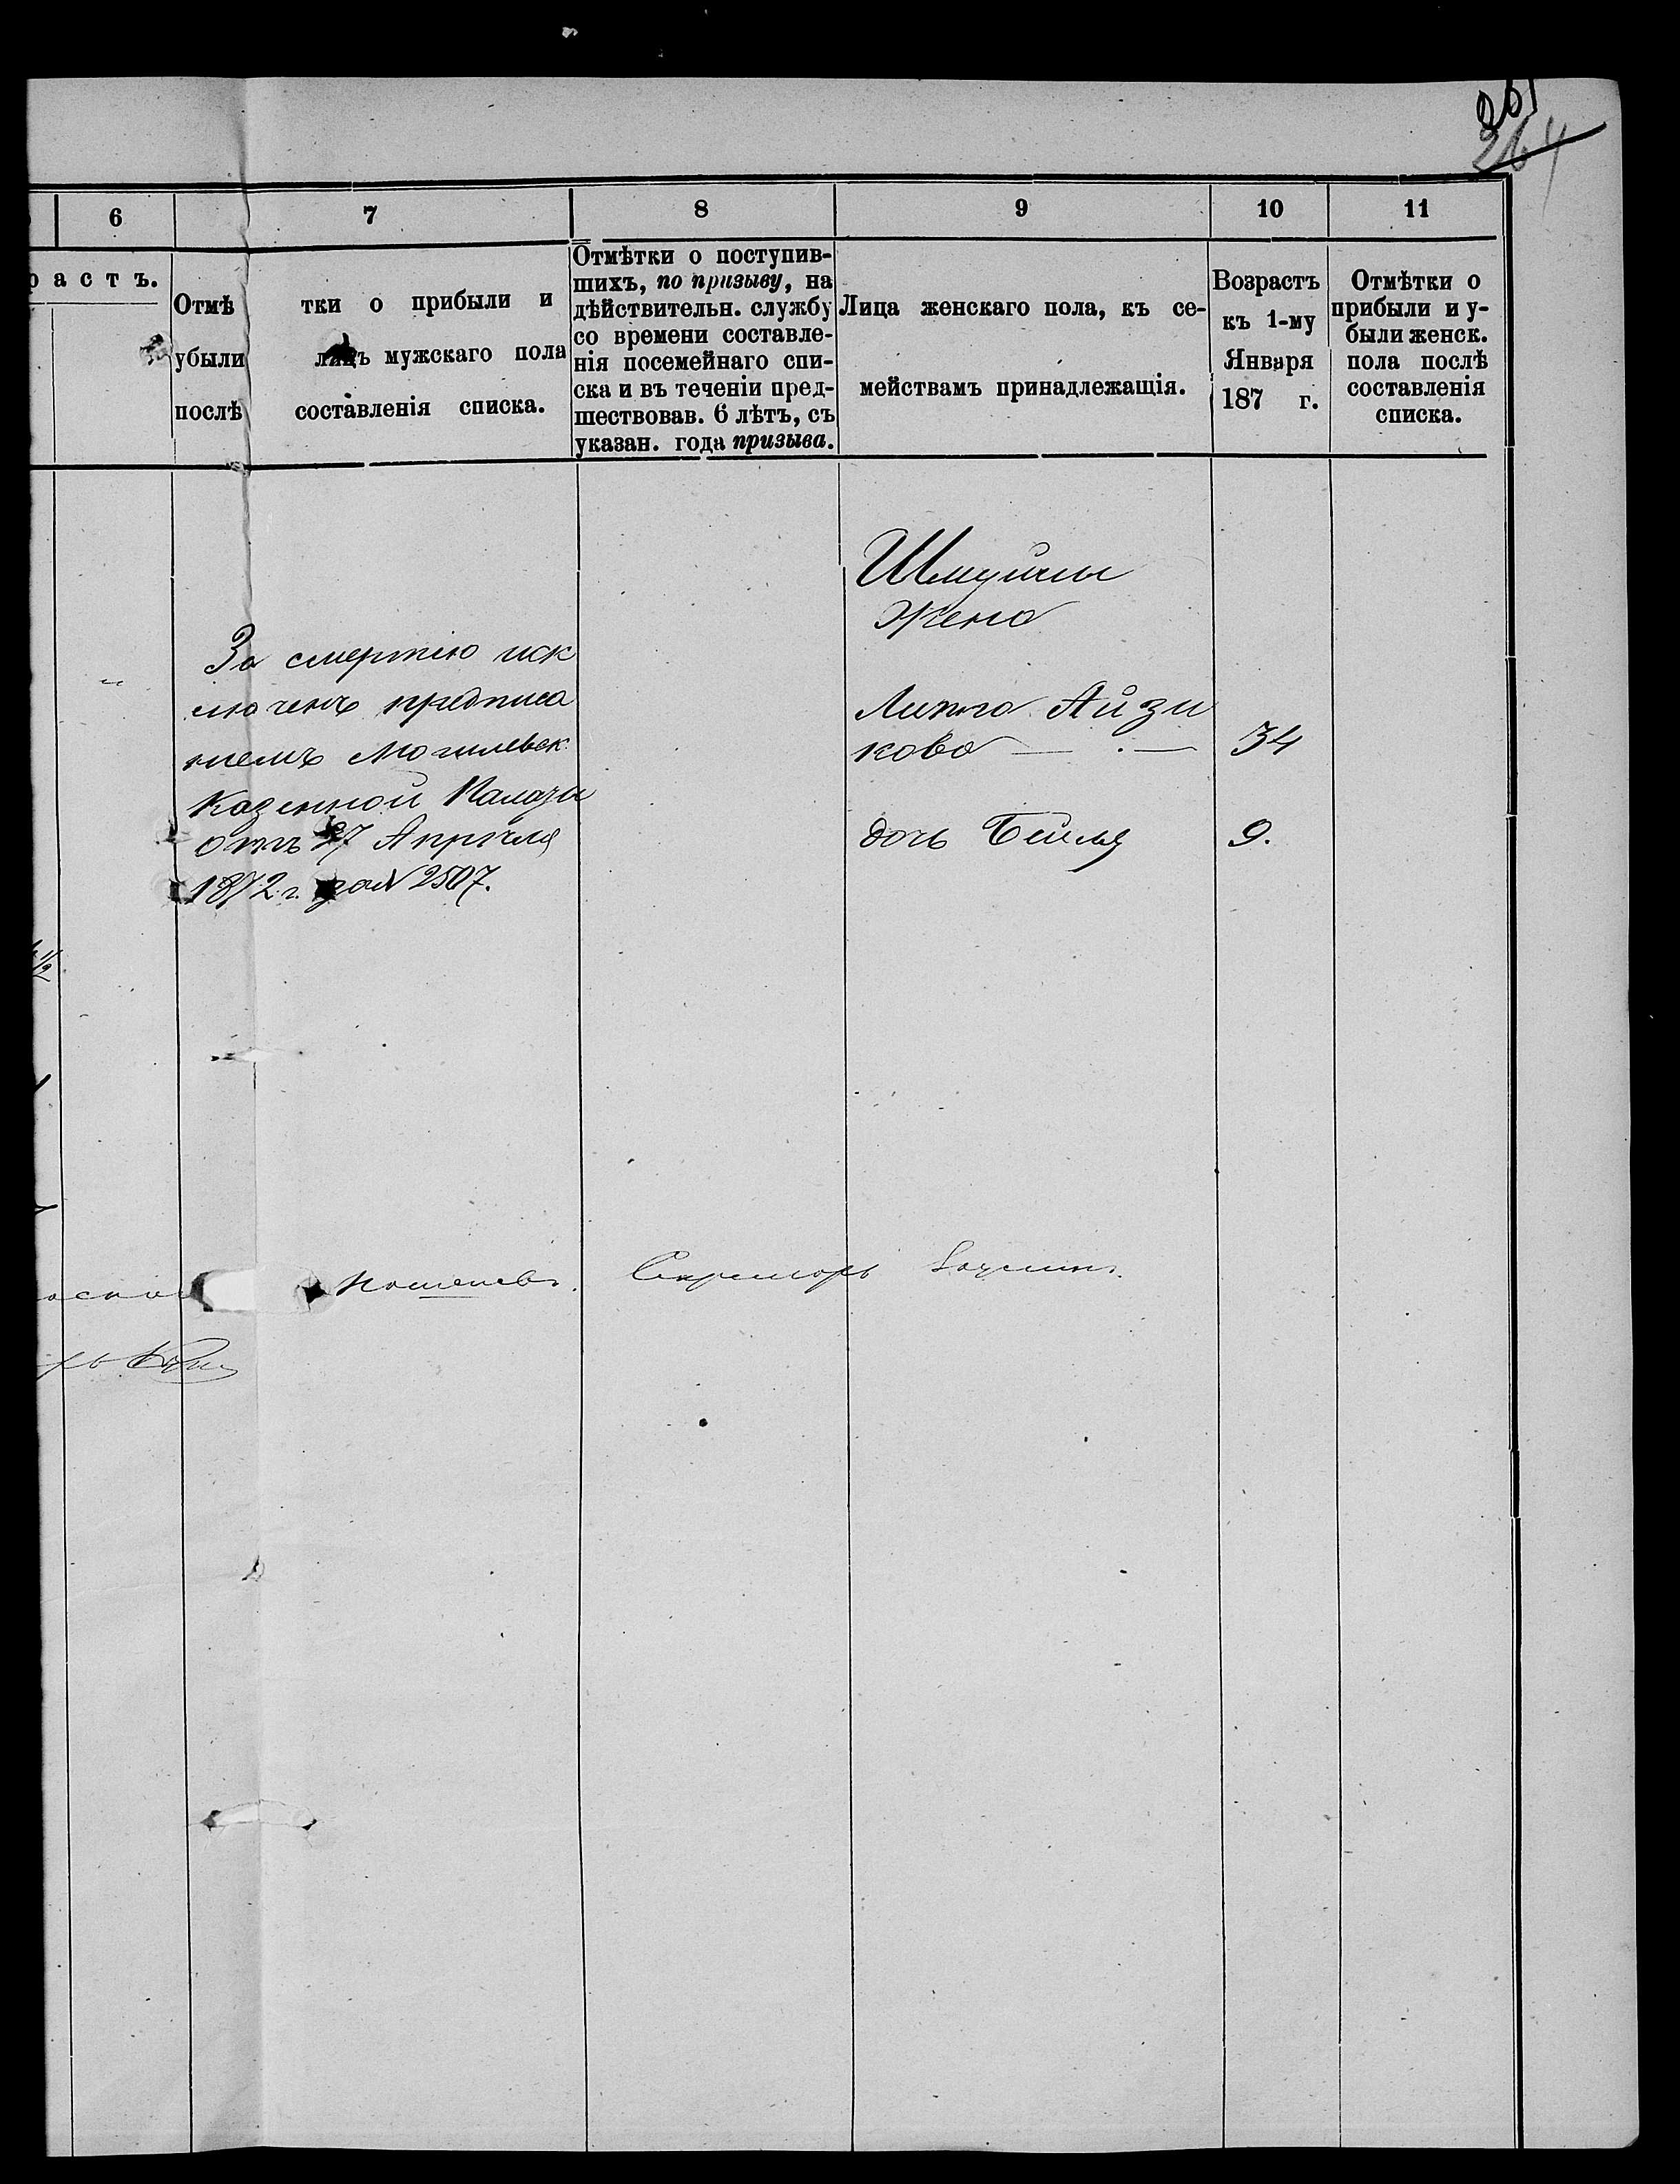 261
264
6
7
8
9
10
11
растъ.
Отмѣтки о прибыли и
убыли лицъ мужскаго пола
послѣ составленія списка.
Отмѣтки о поступив-
шихъ, по призыву, на
дѣйствительн. службу
со времени составле-
нія посемейнаго спи-
ска и въ теченіи пред-
шествовав. 6 лѣтъ, съ
указан. года призыва.
Лица женскаго пола, къ се-
мействамъ принадлежащія.
Возрастъ
къ 1-му
Января
187 г.
Отмѣтки о
прибыли и у-
были женск.
пола послѣ
составленія
списка.
За смертію иск
люченъ предписа
ніемъ Могилевск.
Казенной Палаты
отъ 27 Апрѣля
1872 г. за № 2507.
Шмуйлы
жена
Липка Айзи
кова 34
дочь Бейля 9.
1/2
Секретарь